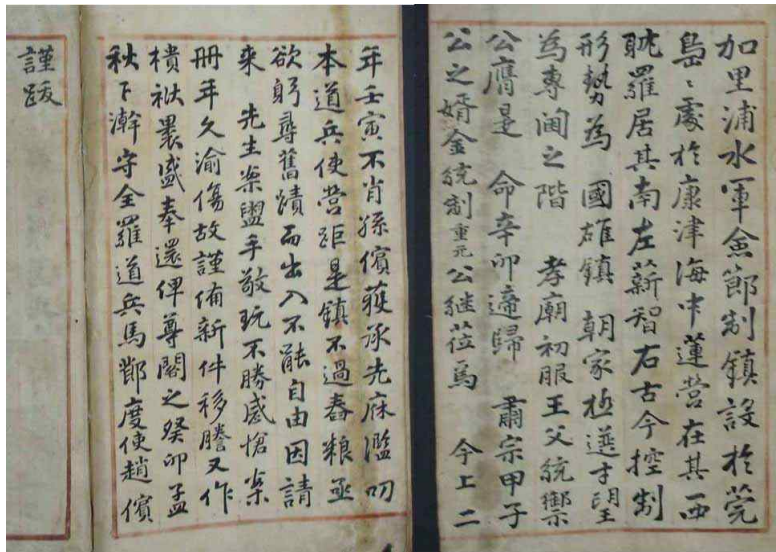 加里浦水軍僉節制鎮設於莞
島々處於康津海中蓮營在其西
眈羅居其南左薪智右古今控制
形勢為 國雄鎮 朝家極選才望
為專閫之階 孝廟初服王父統禦
公膺是 命辛卯遞歸 肅宗甲子
公之婿金統制重元公継莅焉 今上二
年壬寅不肖孫儐獲承先庥濫叨
本道兵使營距是鎮不過舂粮亟
欲躬尋舊蹟而出入不能自由因請
来 先生案盥手敬玩不勝感愴案
冊年久渝傷故謹俻新件移謄又作
樻袱裹盛奉還俾尊閣之癸卯孟
秋下澣守全羅道兵馬節度使趙儐
謹跋